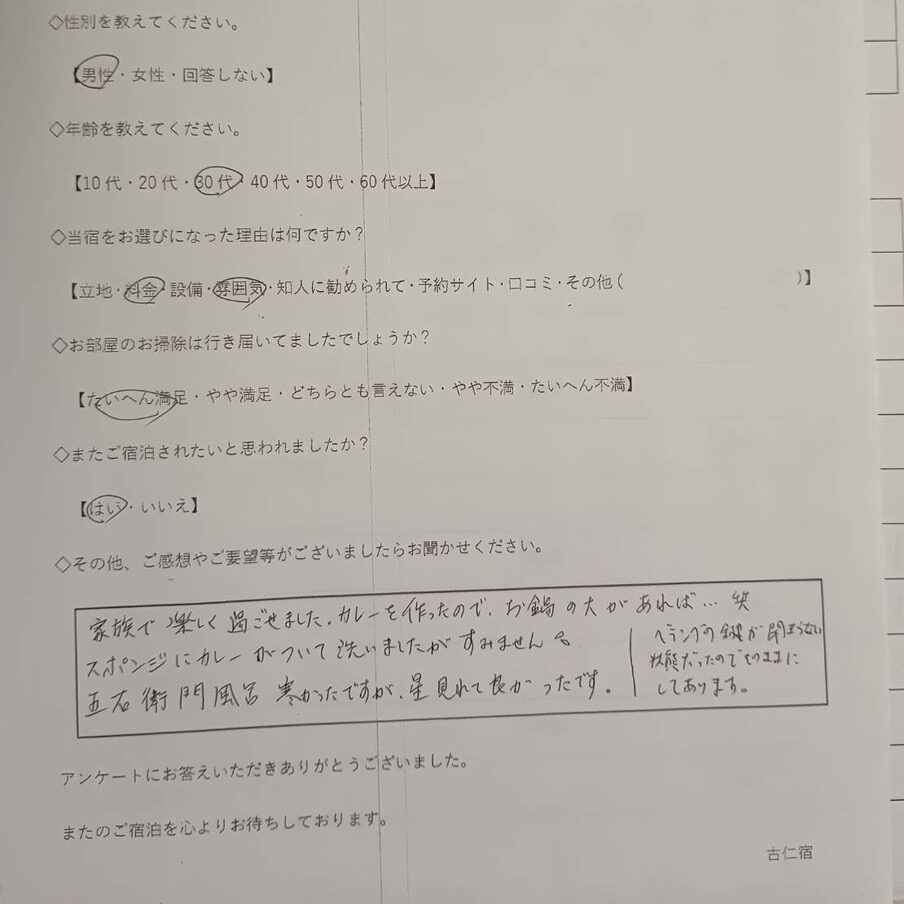 ◇性別を教えてください。
【男性・女性・回答しない】
◇年齢を教えてください。
【10代・20代・30代・40代・50代・60代以上】
◇当宿をお選びになった理由は何ですか？
【立地・料金・設備・雰囲気・知人に勧められて・予約サイト・口コミ・その他（　　　）】
◇お部屋のお掃除は行き届いてましたでしょうか？
【たいへん満足・やや満足・どちらとも言えない・やや不満・たいへん不満】
◇またご宿泊されたいと思われましたか？
【はい・いいえ】
◇その他、ご感想やご要望等がございましたらお聞かせください。
家族で楽しく過ごせました。カレーを作ったので、お鍋の大があれば…笑
スポンジにカレーがついて洗いましたがすみません
五右衛門風呂寒かったですが、星見れて良かったです。
ベランダの鍵が閉まらない
状態だったのでそのままに
してあります。
アンケートにお答えいただきありがとうございました。
またのご宿泊を心よりお待ちしております。
古仁宿